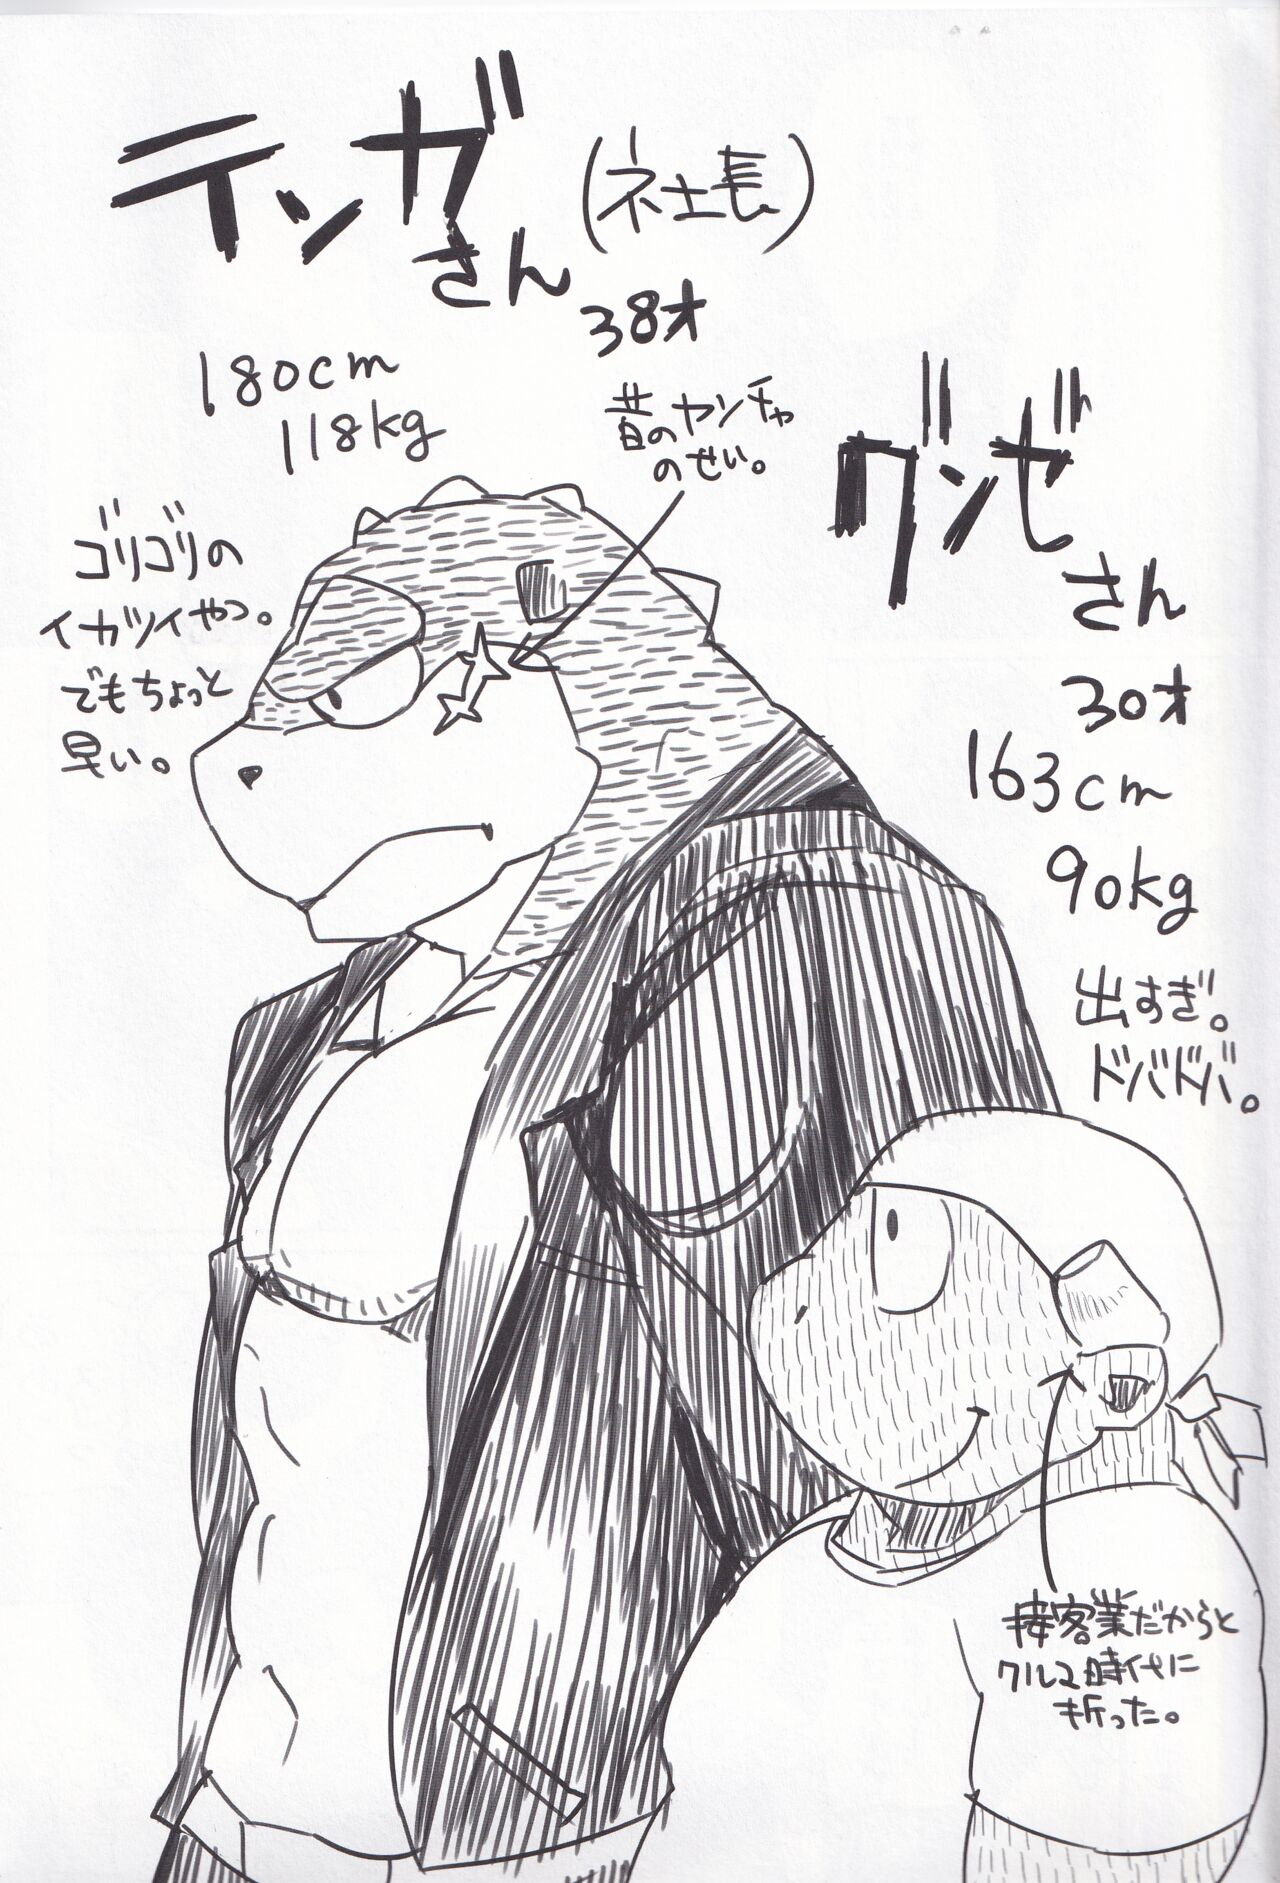 テンガ
さん
(ネ土長)
38才
180cm
118kg
昔のヤンチャ
のせい。
ゴリゴリの
イカツイやつ。
でもちょっと
早い。
グンゼ
さん
30才
163cm
90kg
出すぎ。
ドバドバ。
接客業だからと
クルマ時代に
折った。